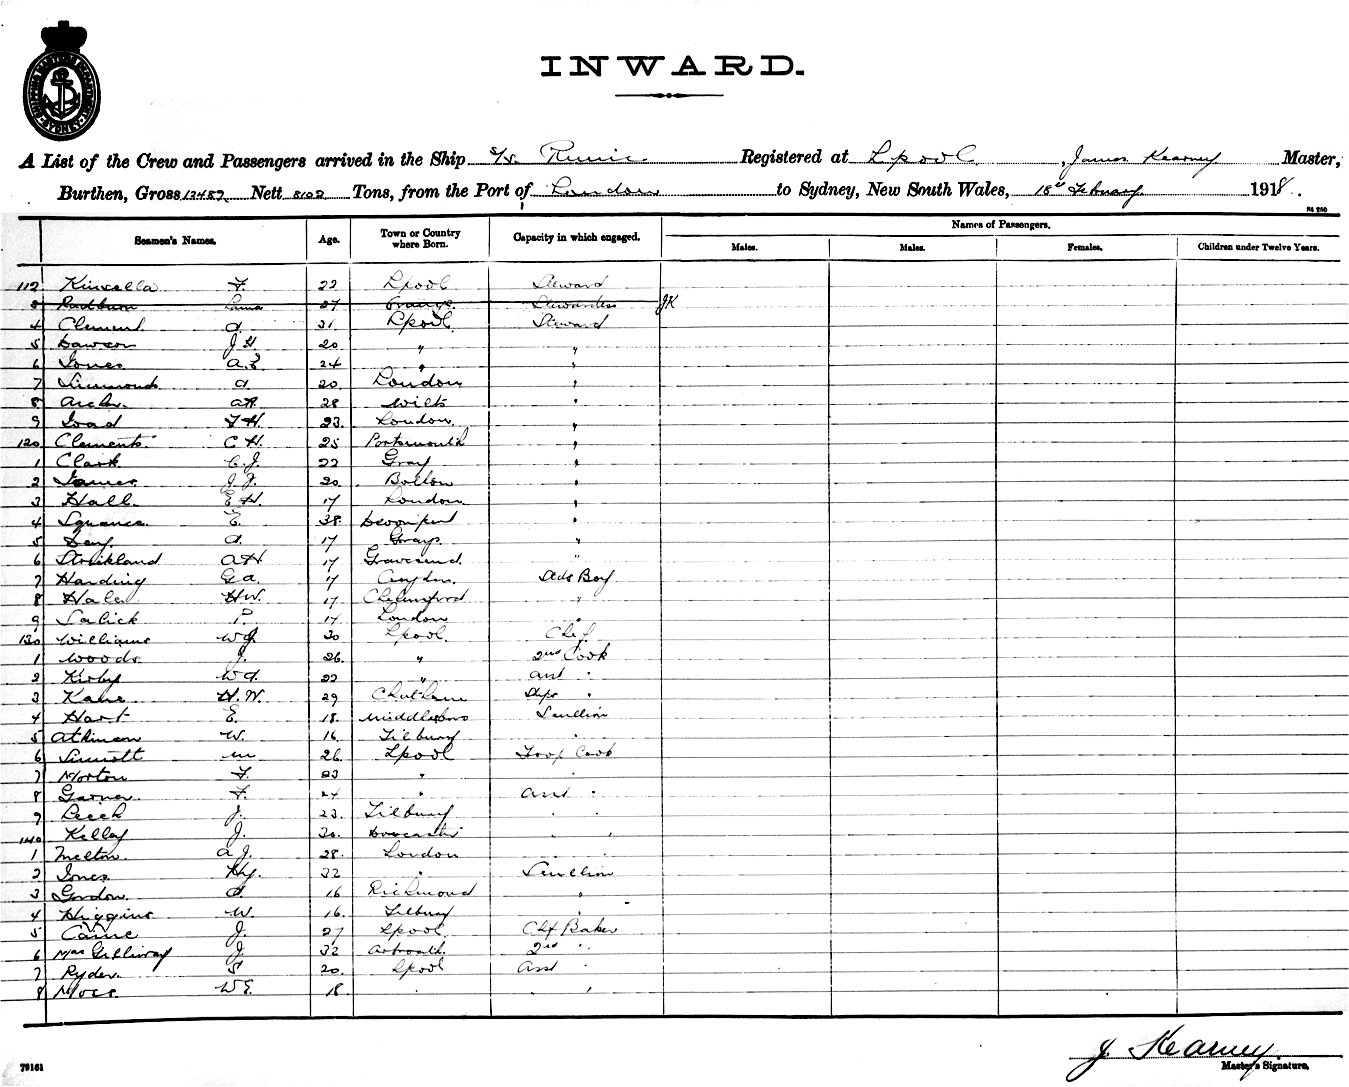 SHIPPING MASTER'S DEPARTMENT SYDNEY
INWARD.
A List of the Crew and Passengers arrived in the Ship S/S. Runic Registered at Lpool, James Kearney Master,
Burthen, Gross 12487 Nett 8102 Tons, from the Port of London to Sydney, New South Wales, 18th February 1918.
RS 250
Seamen's Names. Age. Town or Country where Born. Capacity in which engaged. Names of Passengers.
Males. Males. Females. Children under Twelve Years.
112 Kinsella F. 22 Lpool Steward
3 Radburn 27 Orange. Stewardess JK
4 Clement. A. 31. Lpool Steward
5 Dawson J.H. 20 " "
6 Jones A.E. 24 " "
7 Simmonds A. 20. London "
8 Archer. 28 Wilts "
9 Load F.H. 23. London. "
120 Clements C H. 25 Portsmouth "
1 Clark C.J. 22 Gray "
2 James J.J. 20. Bolton "
3 Hall. E H. 17 London. "
4 Squance. E. 38. Devonport "
5 A. 17 Grays "
6 Strickland A H 17 Gravesend. "
7 Harding G A. 17 Croydon. Deck Boy
8 Hale H W. 17 Chelmsford "
9 P. 17 London "
130 Williams W J. 30 Lpool. Chef
1 Woods. J. 26. " 2nd Cook
2 Kirby W A. 22 " Asst "
3 Kane H. W. 29 Chatham "
4 Hart E. 18. Middlesboro Scullion
5 Atkinson W. 16. Tilbury "
6 Sinnott M 26. Lpool Troop Cook
7 Morton F. 23 " "
8 Garner. F. 24 " Asst "
9 Leech J. 23. Tilbury " "
140 Kelley J. 30. Doncaster " "
1 Melton. A J. 28. London " "
2 Jones. Hy. 32 " Scullion
3 Gordon. A. 16 Richmond "
4 Higgins W. 16. Tilbury "
5 Caine J. 27 Lpool Chf Baker
6 MacGillivray J. 32 Arbroath. 2nd "
7 Ryder. S 20. Lpool Asst "
8 Moss. W E. 18. " "
J. Kearney.
79161 Master's Signature.